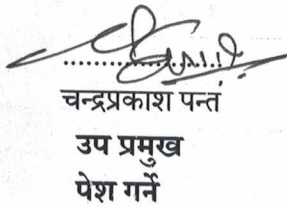 चन्द्रप्रकाश पन्त
उप प्रमुख
पेश गर्ने